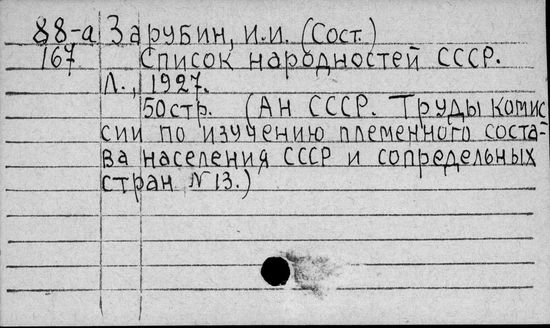 88-а Зарубин, И.И. (Сост.)
167 Список народностей СССР.
Л., 1927.
50стр. (АН СССР. Труды комис
сии по изучению племенного соста-
ва населения СССР и сопредельных
стран №13.)